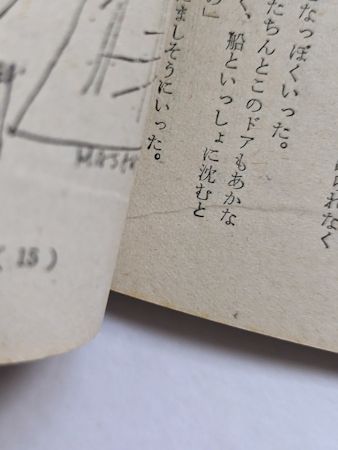 れなく
なっぽくいった。
たちんとこのドアもあかな
く、船といっしょに沈むと
の」
ましそうにいった。
( 15 )